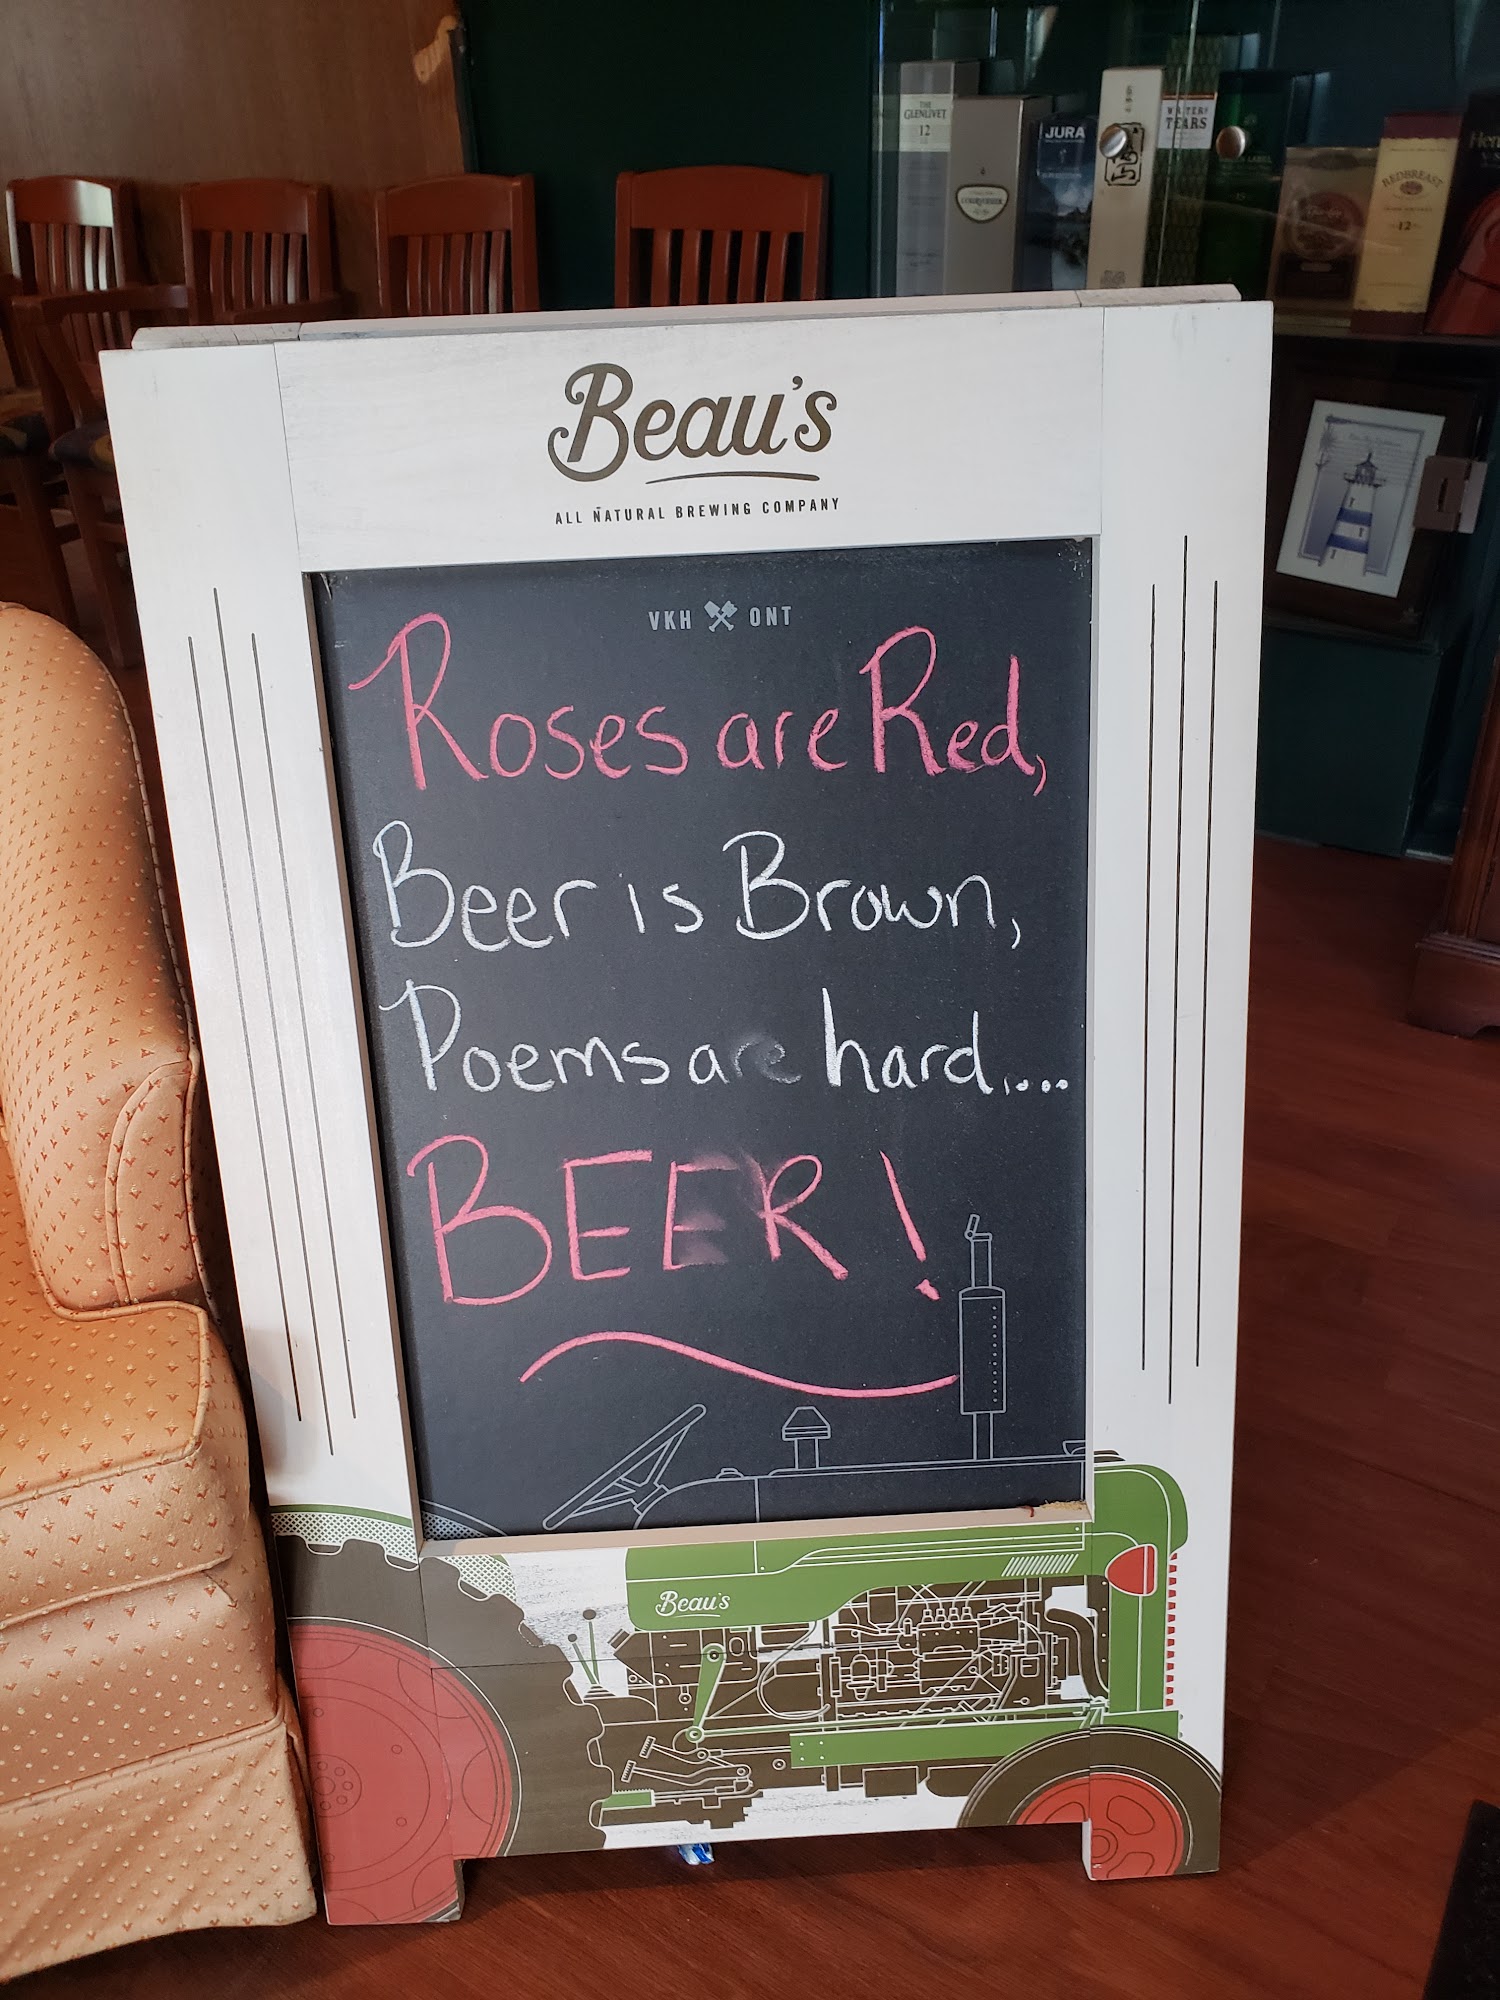 THE
GLENLIVET
12
JURA
WRITERS
TEARS
REDBREAST
12
Beau's
ALL NATURAL BREWING COMPANY
VKH ONT
Roses are Red,
Beer is Brown,
Poems are hard.....
BEER!
Beau's